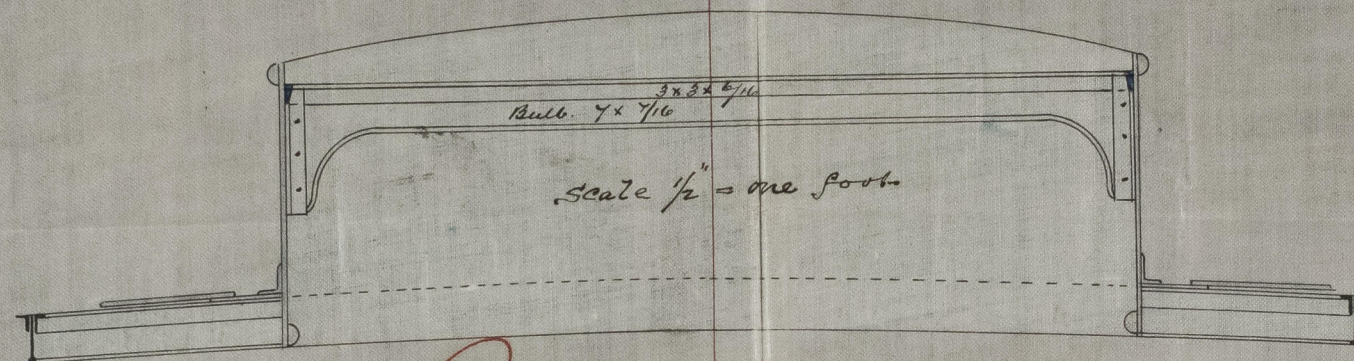 3 x 3 x 6/16
Bulb. 7 x 7/16
Scale 1/2" = one foot